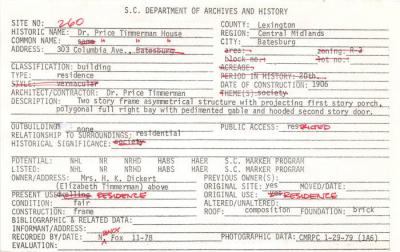 S.C. DEPARTMENT OF ARCHIVES AND HISTORY
SITE NO.: 260 COUNTY: Lexington
HISTORIC NAME: Dr. Price Timmerman House REGION: Central Midlands
COMMON NAME: same " " " CITY: Batesburg
ADDRESS: 303 Columbia Ave., Batesburg area: zoning: R-2
block no.: lot no.:
CLASSIFICATION: building ACREAGE:
TYPE: residence PERIOD IN HISTORY: 20th
STYLE: vernacular DATE OF CONSTRUCTION: 1906
ARCHITECT/CONTRACTOR: Dr. Price Timmerman THEME(S): society
DESCRIPTION: Two story frame asymmetrical structure with projecting first story porch,
polygonal full right bay with pedimented gable and hooded second story door.
OUTBUILDINGS: none PUBLIC ACCESS: restricted
RELATIONSHIP TO SURROUNDINGS: residential
HISTORICAL SIGNIFICANCE: society
POTENTIAL: NH NR NRHD HABS HAER S.C. MARKER PROGRAM
LISTED: NH NL NRHD HABS HAER S.C. MARKER PROGRAM
OWNER/ADDRESS: Mrs. H. K. Dickert PREVIOUS OWNER(S):
(Elizabeth Timmerman) above ORIGINAL SITE: yes MOVED/DATE:
PRESENT USE: dwelling RESIDENCE ORIGINAL USE: yes RESIDENCE
CONDITION: fair ALTERED/UNALTERED:
CONSTRUCTION: frame ROOF: composition FOUNDATION: brick
BIBLIOGRAPHIC & RELATED DATA:
INFORMANT/ADDRESS:
RECORDED BY/DATE: NANCY Fox 11-78 PHOTOGRAPHIC DATA: CMRPC 1-29-79 (1A6)
EVALUATION: